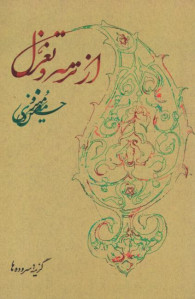 از ترمه و تغزل
حسین منزوی
گزینه سروده‌ها